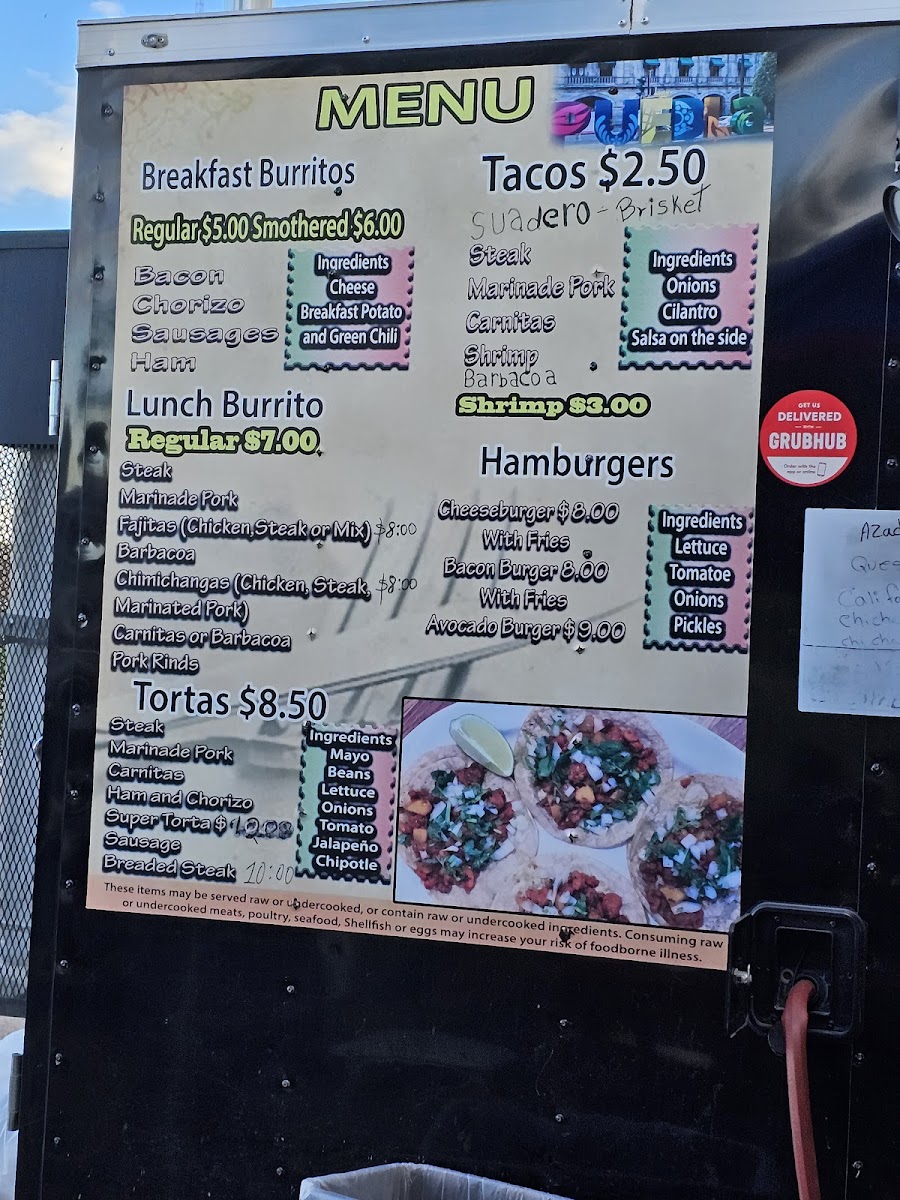 MENU
PUEBLA
Breakfast Burritos
Regular $5.00 Smothered $6.00
Bacon
Chorizo
Sausages
Ham
Ingredients
Cheese
Breakfast Potato
and Green Chili
Lunch Burrito
Regular $7.00
Steak
Marinade Pork
Fajitas (Chicken,Steak or Mix) $8:00
Barbacoa
Chimichangas (Chicken, Steak, $8:00
Marinated Pork)
Carnitas or Barbacoa
Pork Rinds
Tortas $8.50
Steak
Marinade Pork
Carnitas
Ham and Chorizo
Super Torta $10.00
Sausage
Breaded Steak 10:00
Ingredients
Mayo
Beans
Lettuce
Onions
Tomato
Jalapeño
Chipotle
Tacos $2.50
Suadero - Brisket
Steak
Marinade Pork
Carnitas
Shrimp
Barbacoa
Shrimp $3.00
Ingredients
Onions
Cilantro
Salsa on the side
Hamburgers
Cheeseburger $8.00
With Fries
Bacon Burger 8.00
With Fries
Avocado Burger $9.00
Ingredients
Lettuce
Tomatoe
Onions
Pickles
These items may be served raw or undercooked, or contain raw or undercooked ingredients. Consuming raw
or undercooked meats, poultry, seafood, Shellfish or eggs may increase your risk of foodborne illness.
GET US
DELIVERED
WITH
GRUBHUB
Order with the
app or online
Azad
Ques
Califo
Chich
chich